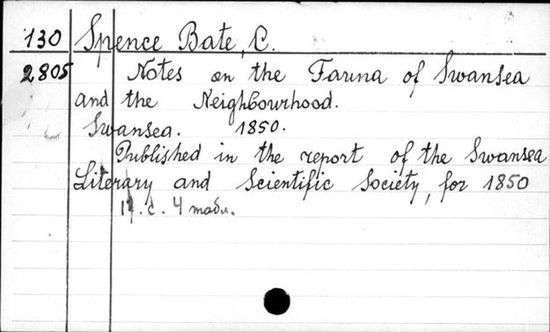 130 Spence Bate, C.
2805 Notes on the Fauna of Swansea
and the Neighbourhood.
Swansea. 1850.
Published in the report of the Swansea
Literary and Scientific Society, for 1850
c. 4